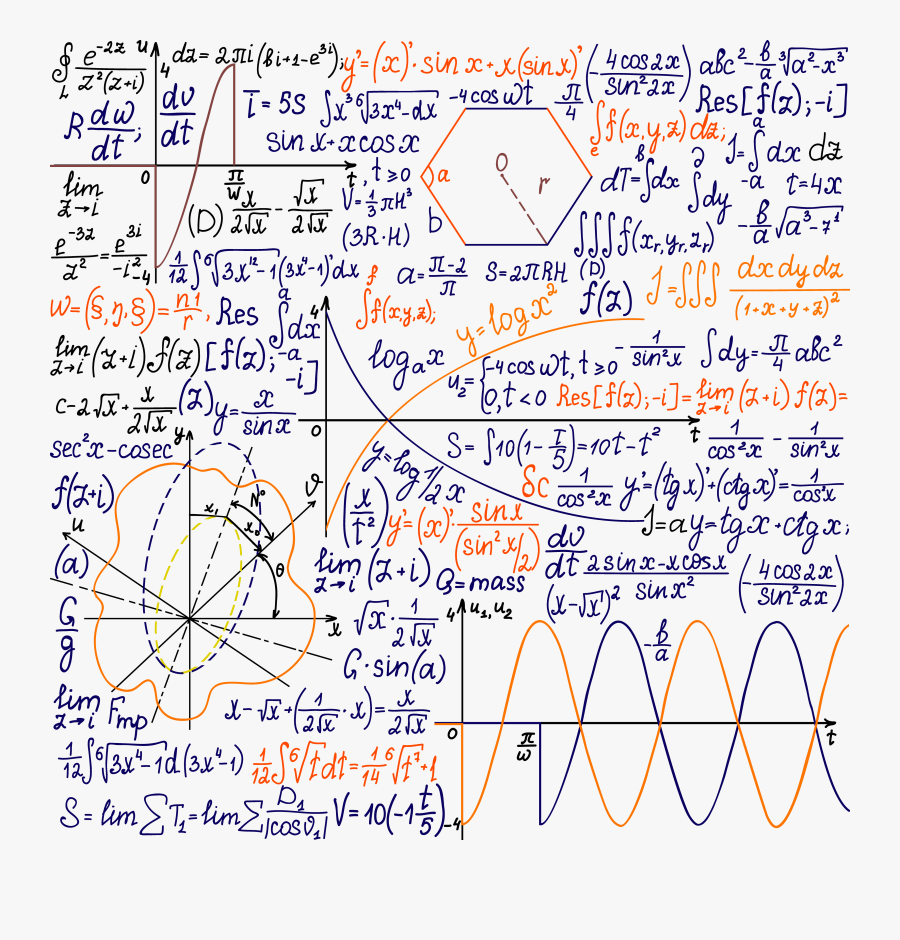 ∮_L e^{-2z} / z²(z+i)
u 4
dz = 2πi(вi+1-e^{3i});
y' = (x)' · sin x + x(sin x)'
(-4cos2x / sin²2x)
авс² - в/а ³√(a²-x³)
R dw/dt;
dv/dt
i = 5S
∫x³ ⁶√(3x⁴-dx)
-4cos wt
π/4
∫_e f(x,y,z) dz;
Res[f(z);-i]
sin x + x cos x
J = ∫^a_в dx dz
0 π/w t
t ≥ 0
a O r
dT = ∫dx
∂ ∫dy -a
t = 4x
lim z→i
(D) x/2√x - √x/2√x
V = 1/3 πH³
b
∫∫∫f(x_r, y_r, z_r)
-в/а √(a³-7¹)
e^{-3z}/z² = e^{3i}/-i²
-4
1/12 ∫⁶√(3x¹²-1)(3x⁴-1)'dx
(3R·H)
a = π-2/π
S = 2πRH
(D)
f(z)
J = ∫∫∫ dx dy dz / (1+x+y+z)²
w = (§,η,§) = n1/r,
Res
∫^a_{-a} dx
4
∫^f f(x,y,z);
y = log x²
lim z→i (z+i)f(z)
[f(z); -i]
log_a x
u₂ = { -4cos wt, t ≥ 0
0, t < 0
-1/sin²x
∫dy = π/4 авс²
c - 2√x + x/2√x
(z)
y = x/sin x
Res[f(z);-i] = lim z→i (z+i) f(z) =
0 t
sec²x - cosec
y
S = ∫10(1 - t/5) = 10t - t²
1/cos²x - 1/sin²x
f(z+i)
x₁ N° ϑ
y = log 1/2 x
δc 1/cos²x
y' = (tg x)' + (ctg x)' = 1/cos²x
u
(x/t²)
y' = (x)' · sin x / (sin² x/2)
J = ay = tg x + ctg x;
(a)
θ
lim z→i (z+i)
Q = mass
dv/dt
2sin x - x cos x / sin x²
(-4cos2x / sin²2x)
G/g
x
√x · 1/2√x
4 u₁, u₂
(x-√x)²
-в/а
G·sin(a)
lim z→i
F_mp
x - √x + (1/2√x · x) = x/2√x
0 π/w t
1/12 ∫⁶√(3x⁴-1) d(3x⁴-1)
1/12 ∫⁶√t dt = 1/14 ⁶√t⁷ + 1
S = lim ∑ T₁ = lim ∑ D₁/|cosϑ₁|
V = 10(-1 t/5)
-4